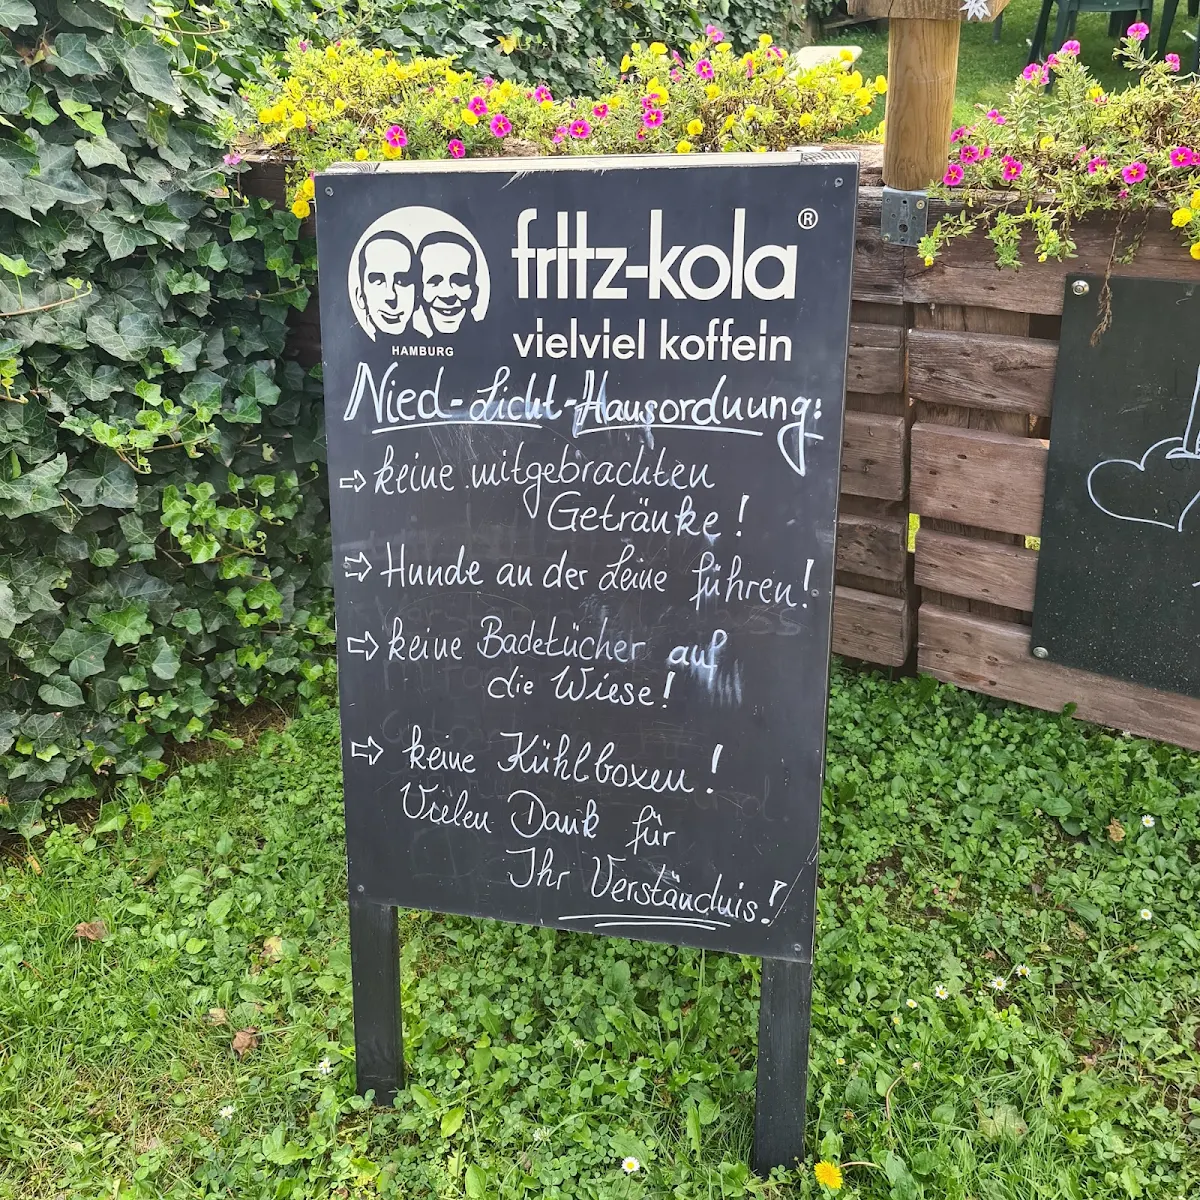 HAMBURG
fritz-kola®
vielviel koffein
Nied-Licht-Hausordnung:
⇨ keine mitgebrachten
Getränke!
⇨ Hunde an der Leine führen!
⇨ keine Badetücher auf
die Wiese!
⇨ keine Kühlboxen!
Vielen Dank für
Ihr Verständnis!